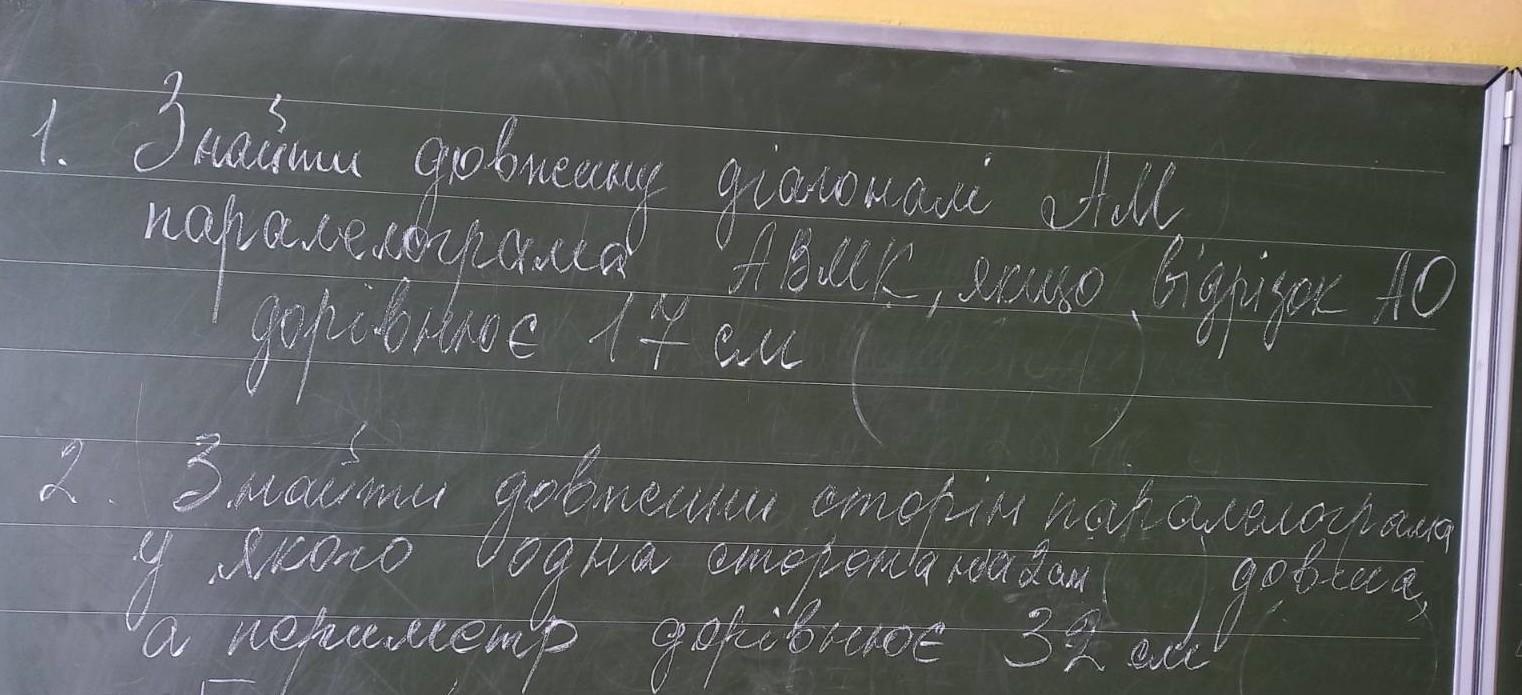 1. Знайти довжину діагоналі АМ
паралелограма АВМК, якщо відрізок АО
дорівнює 17 см ( )
2. Знайти довжини сторін паралелограма
у якого одна сторона на 2 см ( ) довша,
а периметр дорівнює 32 см